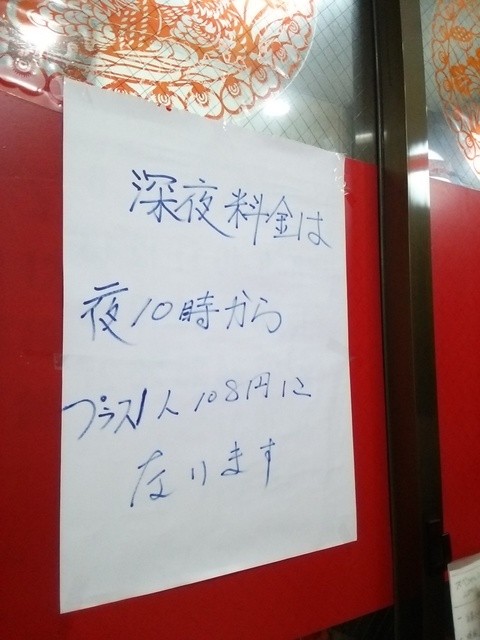 深夜料金は
夜10時から
プラス1人108円に
なります